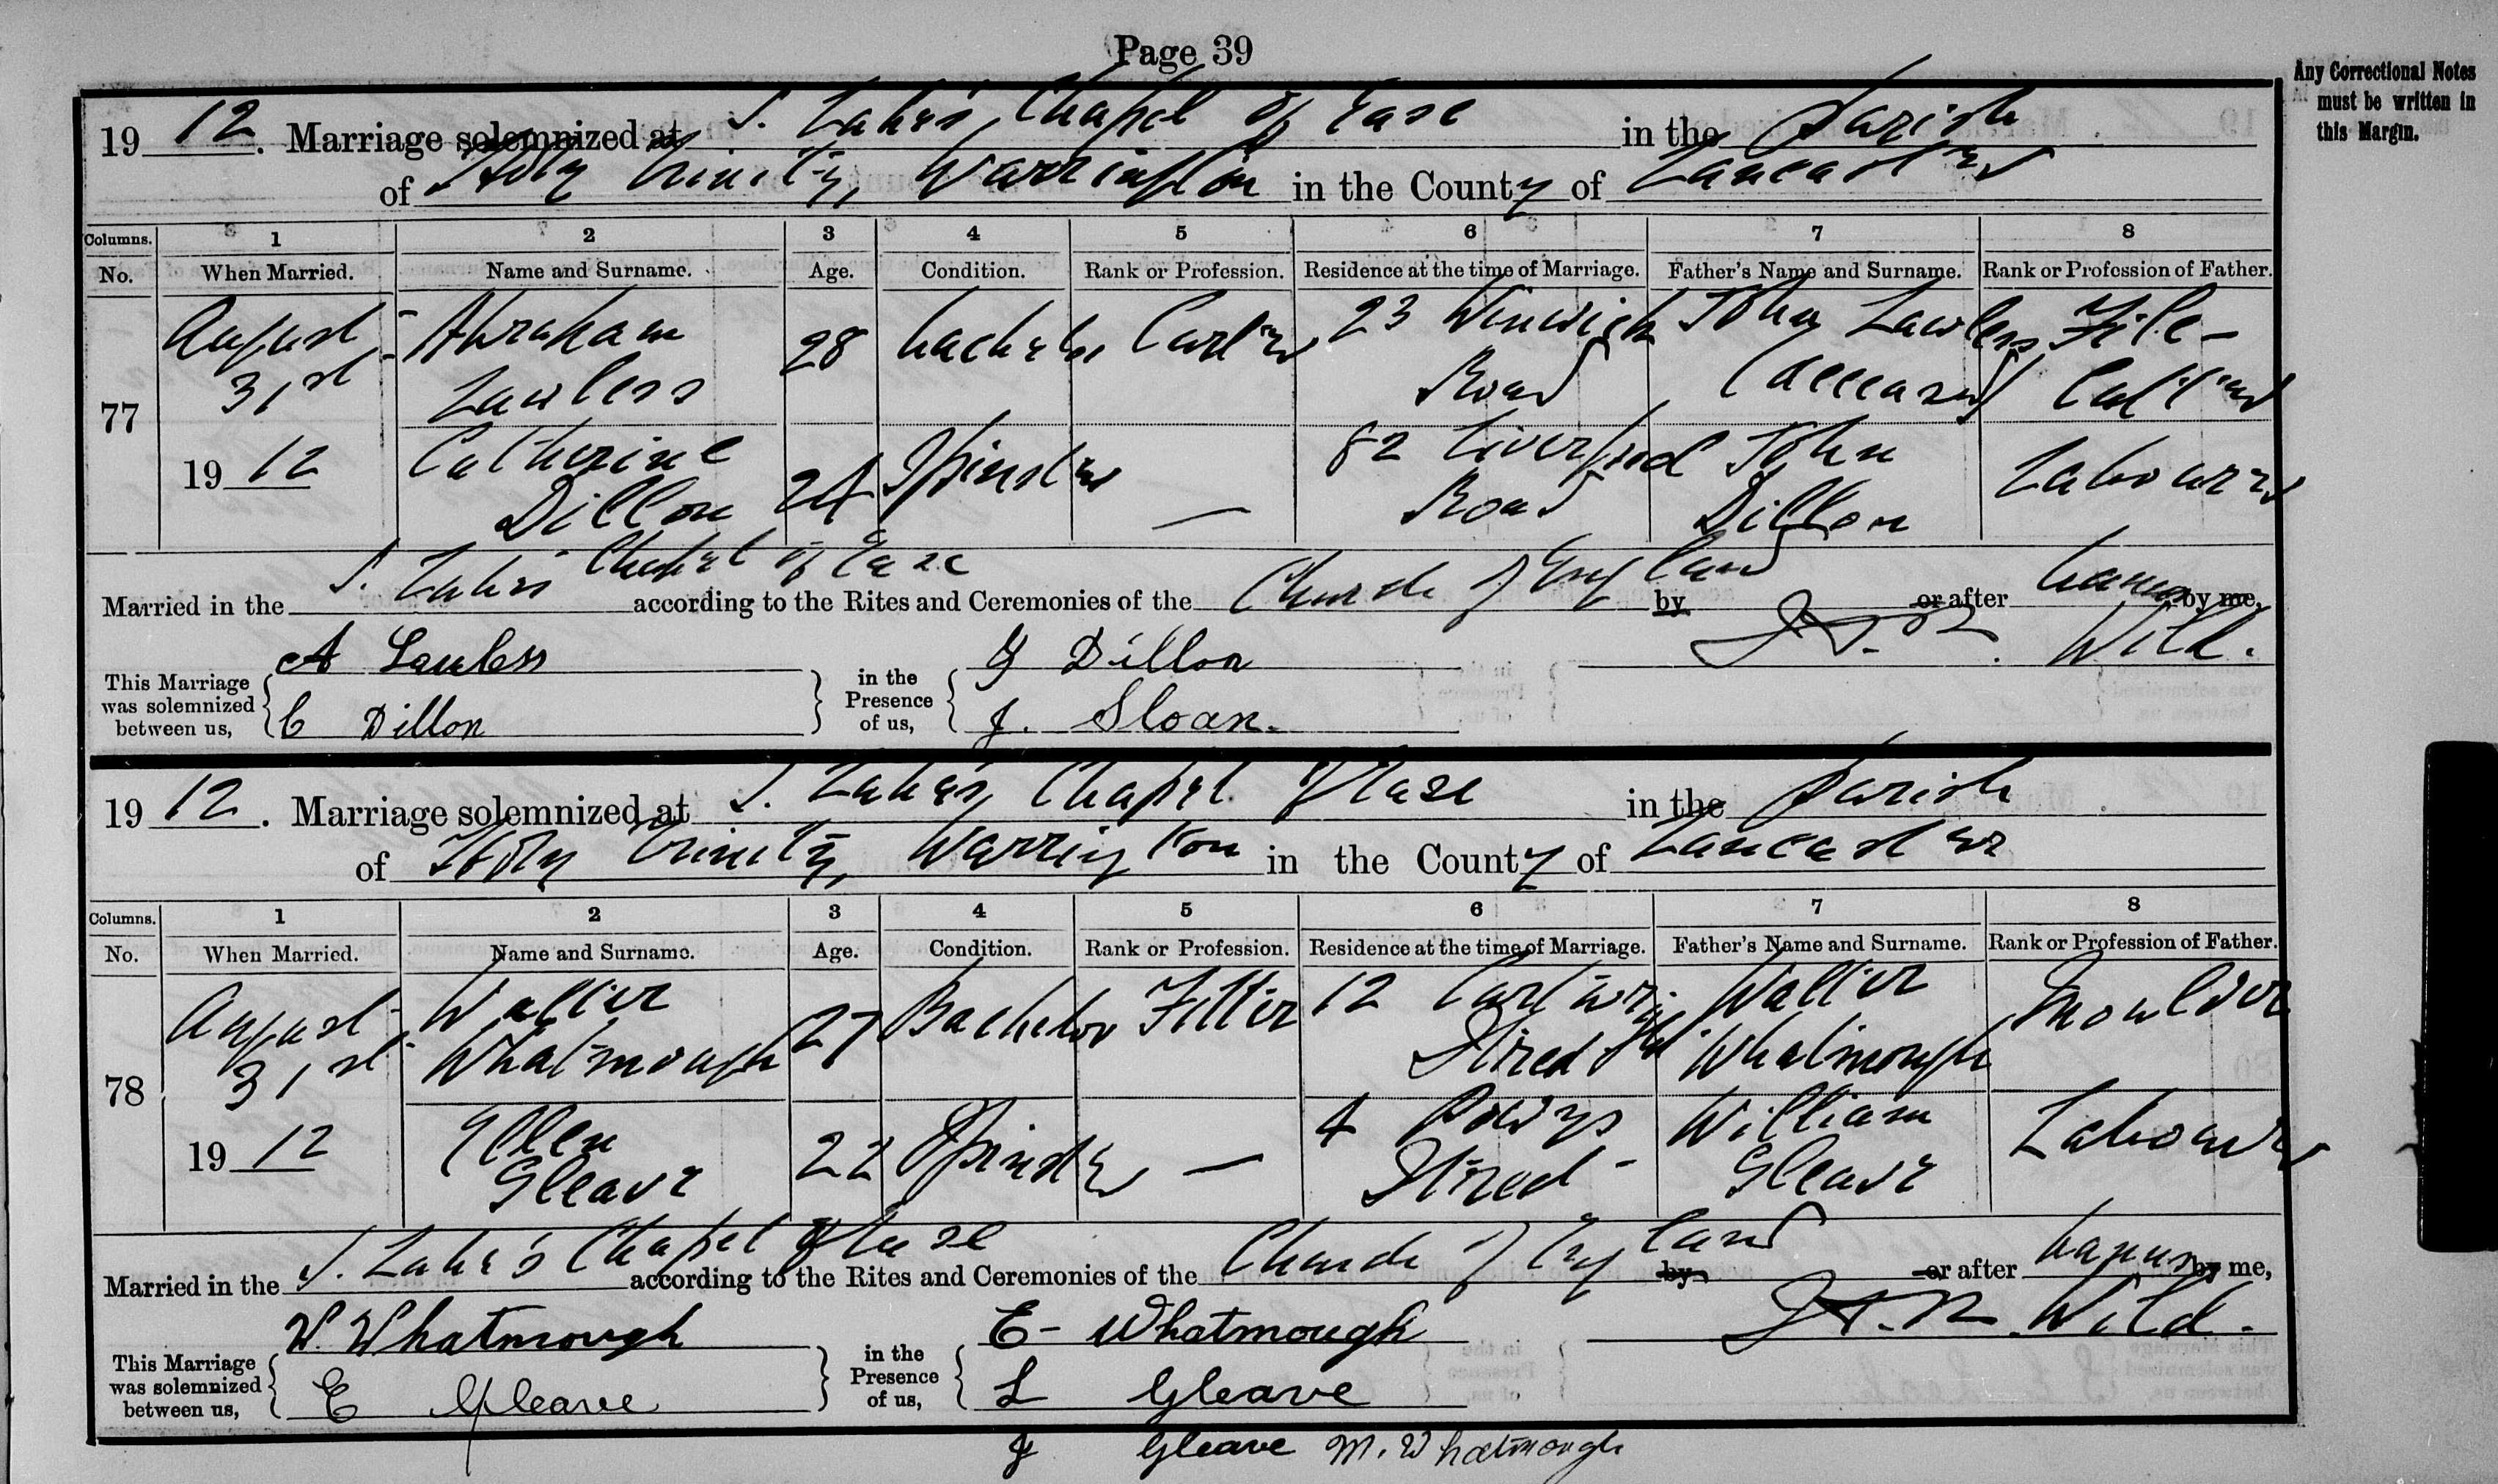 Page 39
Any Correctional Notes
must be written in
this Margin.
1912. Marriage solemnized at S. Luke's, Chapel of Ease in the Parish
of Holy Trinity, Warrington in the County of Lancaster
Columns. 1 2 3 4 5 6 7 8
No. When Married. Name and Surname. Age. Condition. Rank or Profession. Residence at the time of Marriage. Father's Name and Surname. Rank or Profession of Father.
August Abraham 28 bachelor Carter 23 Winwick John Lawless File-
31st Lawless Road (deceased) Cutter
77
1912 Catherine 24 Spinster — 82 Liverpool John Labourer
Dillon Road Dillon
Married in the S. Luke's Chapel of Ease according to the Rites and Ceremonies of the Church of England by or after banns by me,
A Lawless G Dillon Wild.
This Marriage was solemnized between us, in the Presence of us,
C Dillon J. Sloan.
1912. Marriage solemnized at S. Luke's, Chapel of Ease in the Parish
of Holy Trinity, Warrington in the County of Lancaster
Columns. 1 2 3 4 5 6 7 8
No. When Married. Name and Surname. Age. Condition. Rank or Profession. Residence at the time of Marriage. Father's Name and Surname. Rank or Profession of Father.
August Walter 27 Bachelor Fitter 12 Cartwright Walter Moulder
31st Whatmough Street Whatmough
78
1912 Ellen 22 Spinster — 4 Powys William Labourer
Gleave Street Gleave
Married in the S. Luke's Chapel of Ease according to the Rites and Ceremonies of the Church of England by or after banns by me,
W. Whatmough E- Whatmough Wild.
This Marriage was solemnized between us, in the Presence of us,
E Gleave L Gleave
J Gleave M. Whatmough